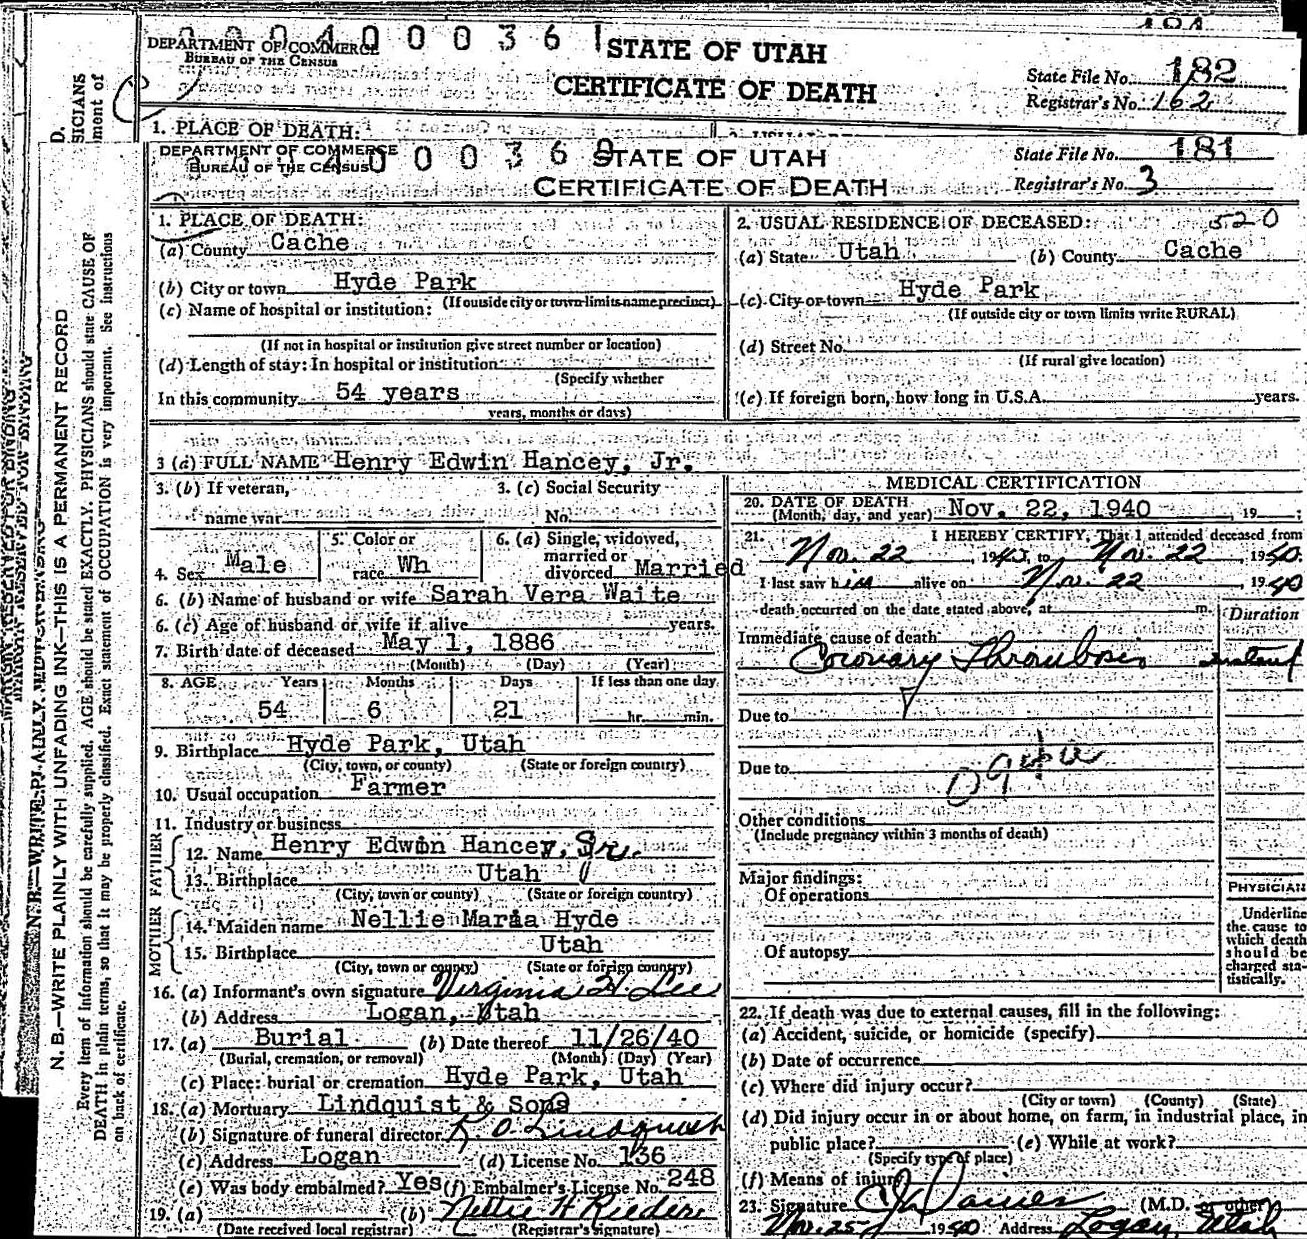 DEPARTMENT OF COMMERCE
BUREAU OF THE CENSUS
STATE OF UTAH
CERTIFICATE OF DEATH
State File No. 182
Registrar's No. 162
1. PLACE OF DEATH:
DEPARTMENT OF COMMERCE
BUREAU OF THE CENSUS
STATE OF UTAH
CERTIFICATE OF DEATH
State File No. 181
Registrar's No. 3
1. PLACE OF DEATH:
(a) County Cache
(b) City or town Hyde Park
(If outside city or town limits name precinct)
(c) Name of hospital or institution:
(If not in hospital or institution give street number or location)
(d) Length of stay: In hospital or institution
(Specify whether
In this community 54 years
years, months or days)
2. USUAL RESIDENCE OF DECEASED: 520
(a) State Utah (b) County Cache
(c) City or town Hyde Park
(If outside city or town limits write RURAL)
(d) Street No.
(If rural give location)
(e) If foreign born, how long in U.S.A. years.
3 (a) FULL NAME Henry Edwin Hancey, Jr.
3. (b) If veteran,
name war
3. (c) Social Security
No.
4. Sex Male
5. Color or
race Wh
6. (a) Single, widowed,
married or
divorced Married
6. (b) Name of husband or wife Sarah Vera Waite
6. (c) Age of husband or wife if alive years.
7. Birth date of deceased May 1, 1886
(Month) (Day) (Year)
8. AGE Years Months Days If less than one day
54 6 21 hr. min.
9. Birthplace Hyde Park, Utah
(City, town, or county) (State or foreign country)
10. Usual occupation Farmer
11. Industry or business
FATHER
12. Name Henry Edwin Hancey, Sr.
13. Birthplace Utah
(City, town or county) (State or foreign country)
MOTHER
14. Maiden name Nellie Maria Hyde
15. Birthplace Utah
(City, town or county) (State or foreign country)
16. (a) Informant's own signature Virginia H. Lee
(b) Address Logan, Utah
17. (a) Burial (b) Date thereof 11/26/40
(Burial, cremation, or removal) (Month) (Day) (Year)
(c) Place: burial or cremation Hyde Park, Utah
18. (a) Mortuary Lindquist & Sons
(b) Signature of funeral director Lindquist
(c) Address Logan (d) License No. 136
(e) Was body embalmed? Yes (f) Embalmer's License No. 248
19. (a) (b) Nellie H Reeder
(Date received local registrar) (Registrar's signature)
MEDICAL CERTIFICATION
20. DATE OF DEATH
(Month, day, and year) Nov. 22, 1940, 19 ;
21. I HEREBY CERTIFY, That I attended deceased from
Nov. 22, 1940, to Nov. 22, 1940.
I last saw him alive on Nov. 22, 1940
death occurred on the date stated above, at m.
Duration
Immediate cause of death
Coronary Thrombosis instant
Due to
Due to
Other conditions
(Include pregnancy within 3 months of death)
Major findings:
Of operations
Of autopsy
PHYSICIAN
Underline
the cause to
which death
should be
charged sta-
tistically.
22. If death was due to external causes, fill in the following:
(a) Accident, suicide, or homicide (specify)
(b) Date of occurrence
(c) Where did injury occur?
(City or town) (County) (State)
(d) Did injury occur in or about home, on farm, in industrial place, in
public place? (e) While at work?
(Specify type of place)
(f) Means of injury
23. Signature (M.D. or other)
Nov. 25, 1940 Address Logan, Utah
N. B.—WRITE PLAINLY WITH UNFADING INK—THIS IS A PERMANENT RECORD
Every item of information should be carefully supplied. AGE should be stated EXACTLY. PHYSICIANS should state CAUSE OF
DEATH in plain terms, so that it may be properly classified. Exact statement of OCCUPATION is very important. See instructions
on back of certificate.